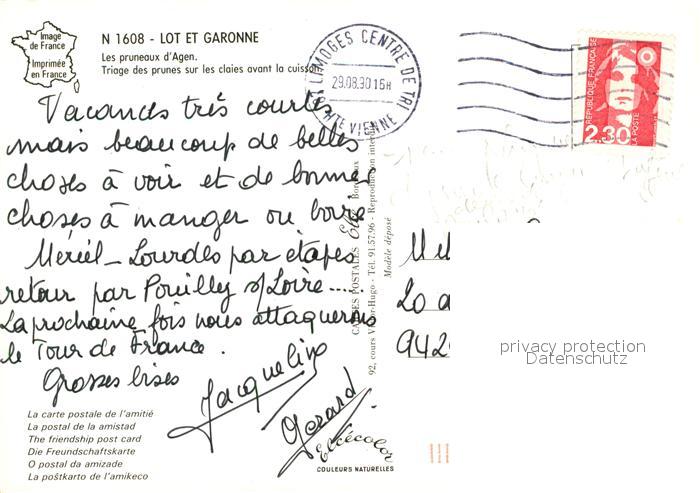 Image
de France
Imprimée
en France
N 1608 - LOT ET GARONNE
Les pruneaux d'Agen.
Triage des prunes sur les claies avant la cuisson
LIMOGES CENTRE DE TRI
29.08.90 15H
HTE VIENNE
RÉPUBLIQUE FRANÇAISE
2,30
LA POSTE
Vacances très courtes
mais beaucoup de belles
choses à voir et de bonnes
choses à manger ou boire
Mériel - Lourdes par étapes
retour par Pouilly s/Loire.....
La prochaine fois nous attaquerons
le Tour de France.
Grosses bises
Jacqueline
Gérard
CARTES POSTALES Elcé Bordeaux
92, cours Victor-Hugo - Tél. 91.57.96 - Reproduction interdite
Modèle déposé
20
942
privacy protection
Datenschutz
La carte postale de l'amitié
La postal de la amistad
The friendship post card
Die Freundschaftskarte
O postal da amizade
La poŝtkarto de l'amikeco
Elcécolor
COULEURS NATURELLES